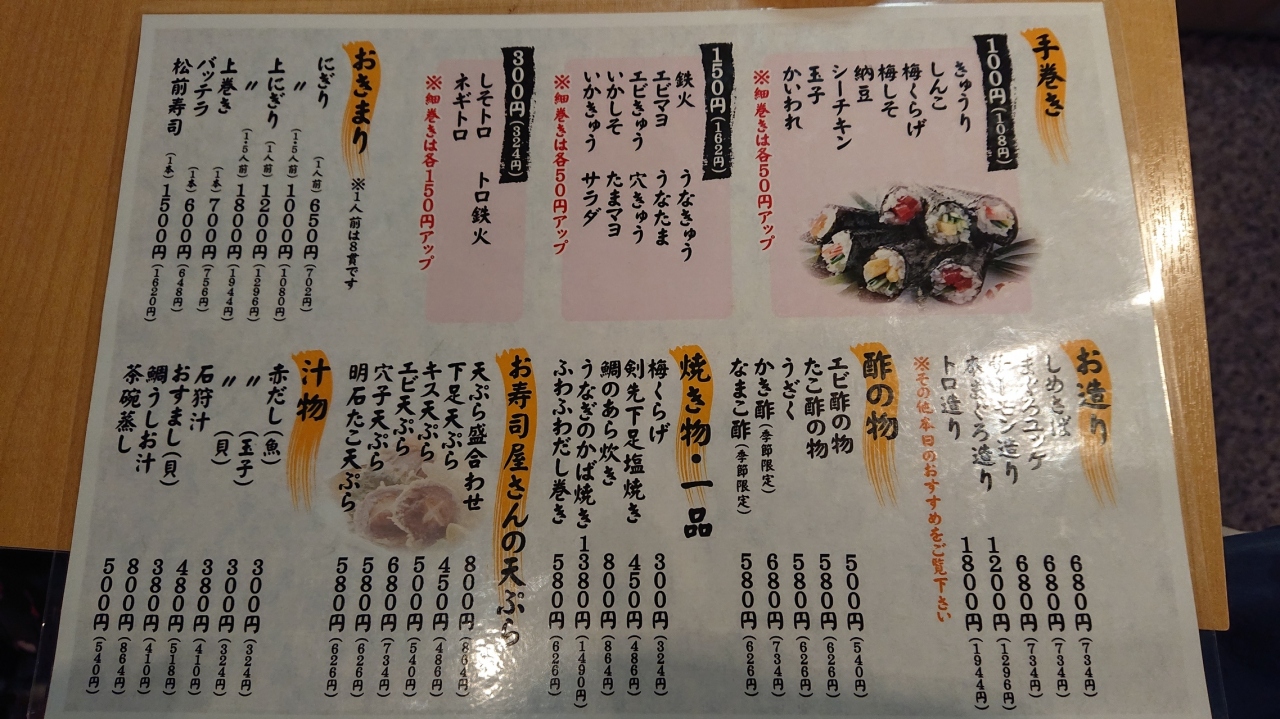 手巻き
100円(108円)
きゅうり
しんこ
梅くらげ
梅しそ
納豆
シーチキン
玉子
かいわれ
※細巻きは各50円アップ
150円(162円)
鉄火 うなきゅう
エビマヨ うなたま
エビきゅう 穴きゅう
いかしそ たまマヨ
いかきゅう サラダ
※細巻きは各50円アップ
300円(324円)
しそトロ トロ鉄火
ネギトロ
※細巻きは各150円アップ
おきまり ※1人前は8貫です
にぎり (1人前) 650円(702円)
〃 (1.5人前) 1000円(1080円)
上にぎり (1人前) 1200円(1296円)
〃 (1.5人前) 1800円(1944円)
上巻き (1本) 700円(756円)
バッテラ (1本) 600円(648円)
松前寿司 (1本) 1500円(1620円)
お造り
しめさば 680円(734円)
まぐろユッケ 680円(734円)
サーモン造り 680円(734円)
造り 1200円(1296円)
トロ造り 1800円(1944円)
※その他本日のおすすめをご覧下さい
酢の物
エビ酢の物 500円(540円)
たこ酢の物 580円(626円)
うざく 580円(626円)
かき酢(季節限定) 680円(734円)
なまこ酢(季節限定) 580円(626円)
焼き物・一品
梅くらげ 300円(324円)
剣先下足塩焼き 450円(486円)
鯛のあら炊き 800円(864円)
うなぎのかば焼き 1380円(1490円)
ふわふわだし巻き 580円(626円)
お寿司屋さんの天ぷら
天ぷら盛合わせ 800円(864円)
下足天ぷら 450円(486円)
キス天ぷら 500円(540円)
エビ天ぷら 680円(734円)
穴子天ぷら 580円(626円)
明石たこ天ぷら 580円(626円)
汁物
赤だし(魚) 300円(324円)
〃 (玉子) 300円(324円)
〃 (貝) 380円(410円)
石狩汁 480円(518円)
おすまし(貝) 380円(410円)
鯛うしお汁 800円(864円)
茶碗蒸し 500円(540円)